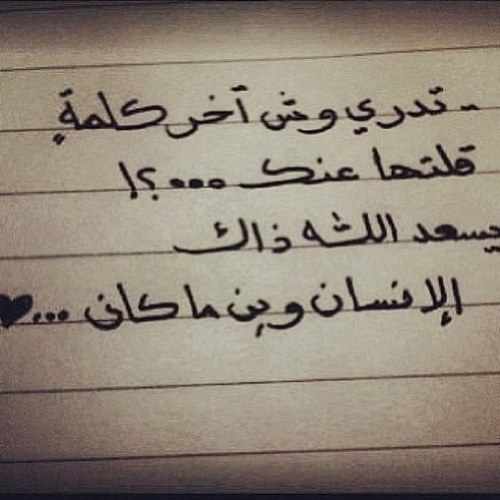 .. تدري وش آخر كلمةٍ
قلتها عنك ...؟!
يسعد الله ذاك
الإنسان وين ما كان ...♥